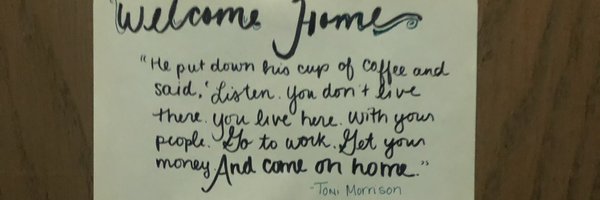 Welcome Home
"He put down his cup of coffee and
said, 'Listen. You don't live
there. You live here. With your
people. Go to work. Get your
money And come on home."
-Toni Morrison